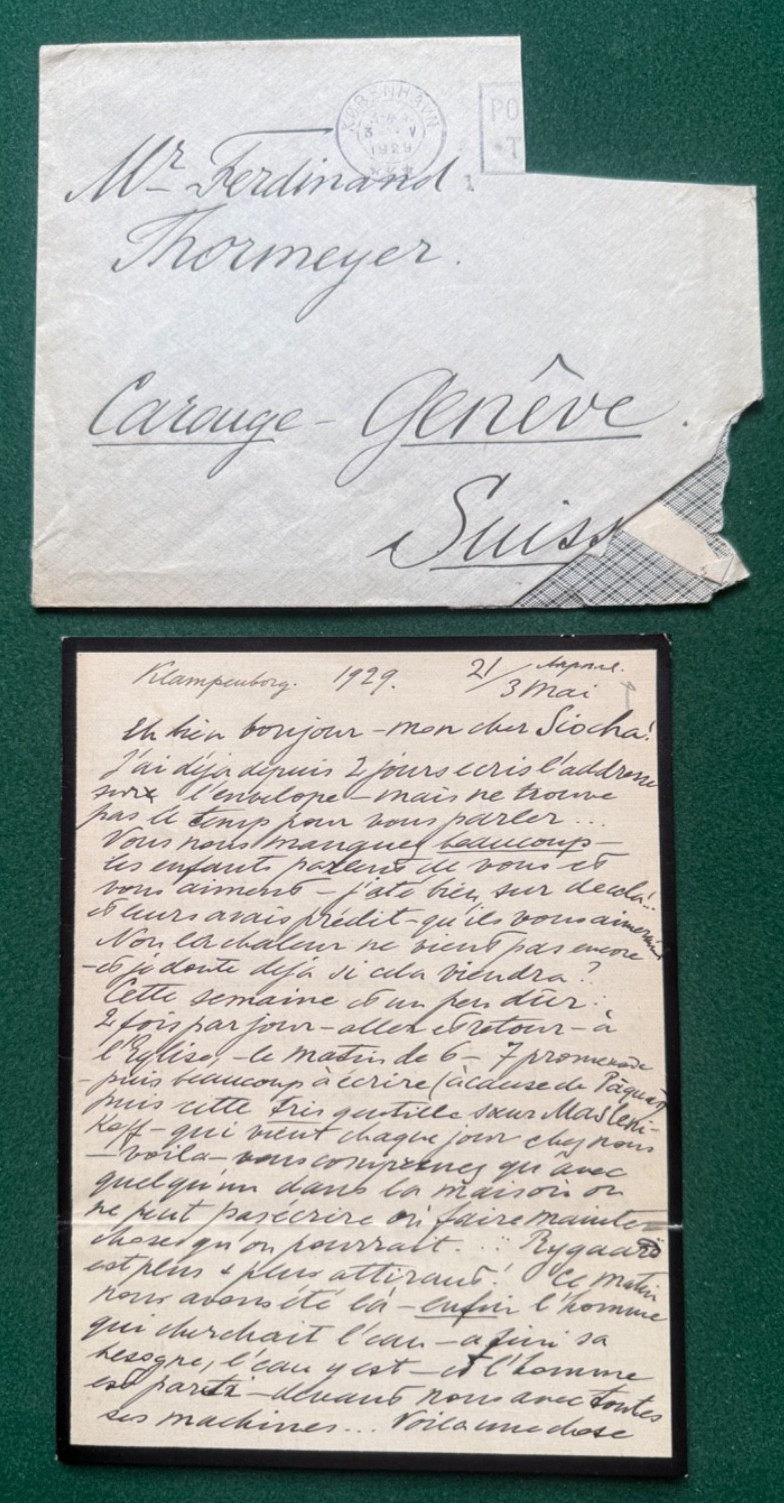 KØBENHAVN
1929
PO
Mr Ferdinand
Thormeyer.
Carouge - Genêve.
Suiss
Klampenborg. 1929. 21/3 Mai
Eh bien bonjour - mon cher Siocha!
J'ai déja depuis 2 jours ecris l'addresse
l'envelope - mais ne trouve
pas le temp pour vous parler...
Vous nous manquez beaucoup -
les enfants parlent de vous et
vous aiment - j'ate bien sur de cela!..
et leurs avais prédit - qu'ils vous aimeraient
Non la chaleur ne vient pas encore
- et je doute dejà si cela viendra?
Cette semaine et un peu dûr:
2 fois par jour - aller et retour - à
l'Eglise, - le matin de 6 - 7 promenade
- puis beaucoup à écrire (à cause de Pâques)
puis cette très gentille sœur Masleni-
koff - qui vient chaque jour chez nous
- voila - vous comprenez qu'avec
quelqu'un dans la maison on
ne peut pas écrire où faire mainte
chose qu'on pourrait... Rygaard
est plus & plus attirant! Ce matin
nous avons été là - enfin l'homme
qui cherchait l'eau - a fini sa
besogne, l'eau y est - et l'homme
est parti - devant nous avec toutes
ses machines... Voila une chose